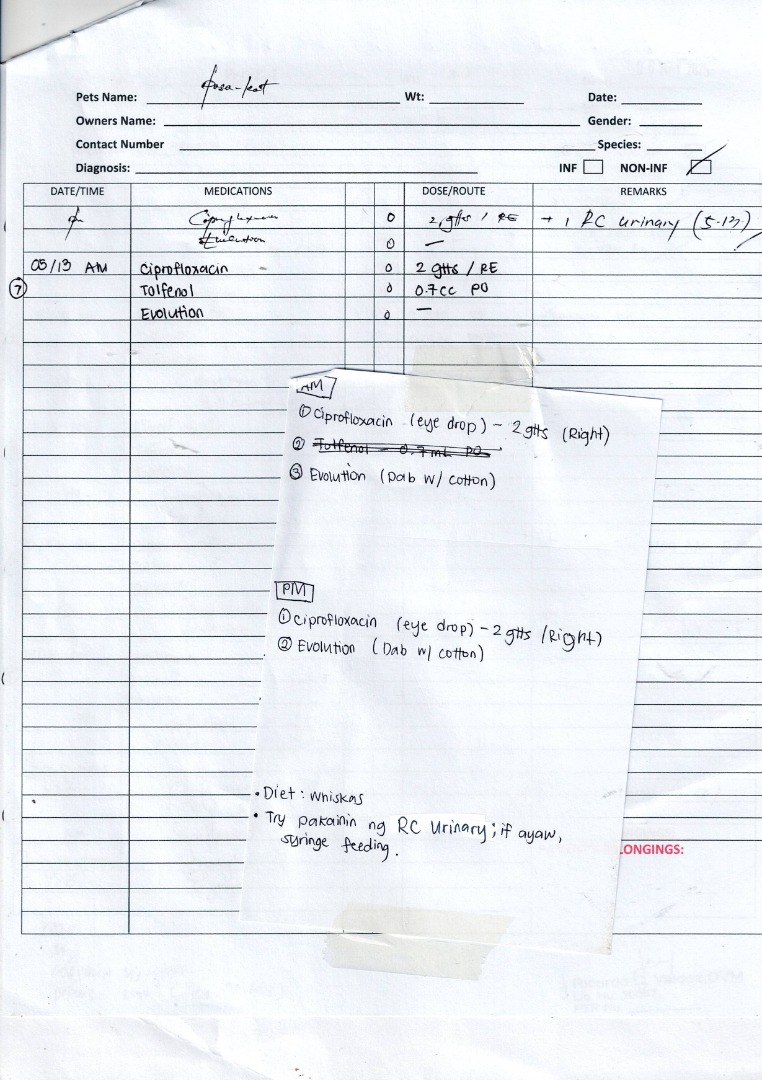 Pets Name: Wt: Date:
Owners Name: Gender:
Contact Number Species:
Diagnosis: INF NON-INF
DATE/TIME MEDICATIONS DOSE/ROUTE REMARKS
0 2 gtts / RE → 1 RC urinary (5-13)
Evolution 0 —
05/13 AM Ciprofloxacin 0 2 gtts / RE
7 Tolfenol 0 0.7cc PO
Evolution 0 —
AM
① Ciprofloxacin (eye drop) - 2 gtts (Right)
② Tolfenol - 0.7mL PO
③ Evolution (Dab w/ cotton)
PM
① Ciprofloxacin (eye drop) - 2 gtts (Right)
② Evolution (Dab w/ cotton)
• Diet : Whiskas
• Try pakainin ng RC Urinary; if ayaw,
syringe feeding.
LONGINGS: